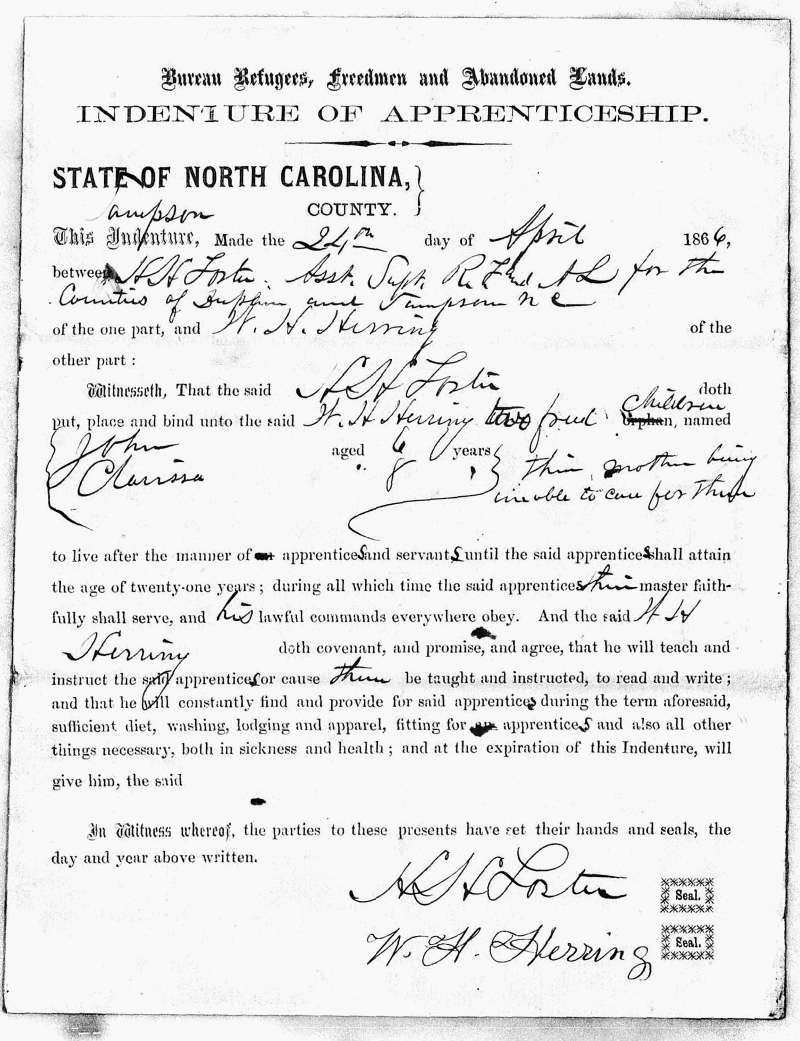 Bureau Refugees, Freedmen and Abandoned Lands.
INDENTURE OF APPRENTICESHIP.
STATE OF NORTH CAROLINA, }
Sampson COUNTY. }
This Indenture, Made the 24th day of April 1866,
between H H Foster. Asst. Supt. R. F. and A L for the
Counties of Duplin and Sampson N C
of the one part, and W. H. Herring of the
other part :
Witnesseth, That the said H H Foster doth
put, place and bind unto the said W. H Herring two freed Children orphan, named
John aged 6 years
Clarissa 8 { their mother being
unable to care for them
to live after the manner of an apprentices and servants, until the said apprentices shall attain
the age of twenty-one years ; during all which time the said apprentices their master faith-
fully shall serve, and his lawful commands everywhere obey. And the said W H
Herring doth covenant, and promise, and agree, that he will teach and
instruct the said apprentices or cause them be taught and instructed, to read and write ;
and that he will constantly find and provide for said apprentices during the term aforesaid,
sufficient diet, washing, lodging and apparel, fitting for an apprentices and also all other
things necessary, both in sickness and health ; and at the expiration of this Indenture, will
give him, the said
In Witness whereof, the parties to these presents have set their hands and seals, the
day and year above written.
H H Foster Seal.
W. H. Herring Seal.